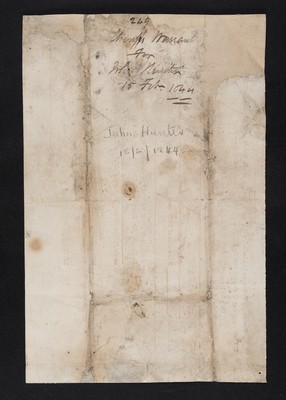 249
Sheriffs Warrant
For
John Hunter
15 Feb 1844
John Hunter
15/2/1844